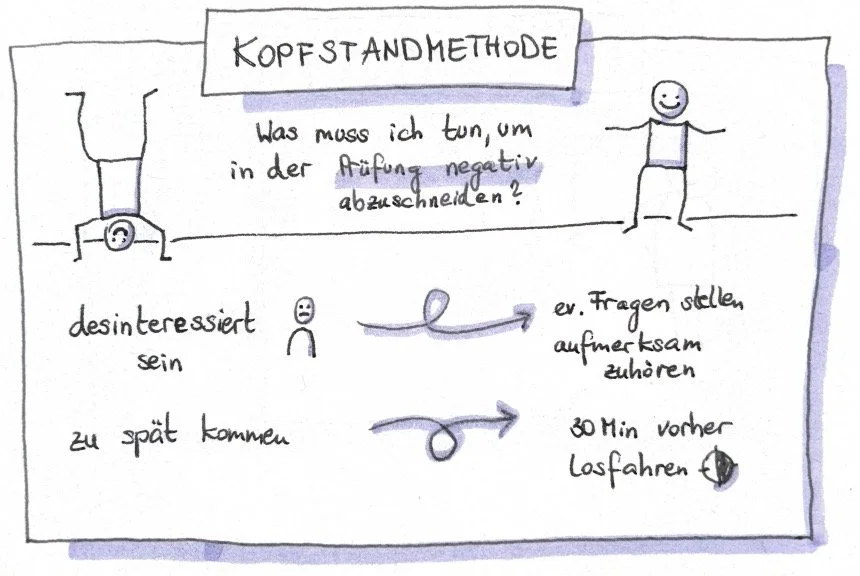 KOPFSTANDMETHODE
Was muss ich tun, um
in der Prüfung negativ
abzuschneiden?
desinteressiert
sein
ev. Fragen stellen
aufmerksam
zuhören
zu spät kommen
30 Min vorher
losfahren